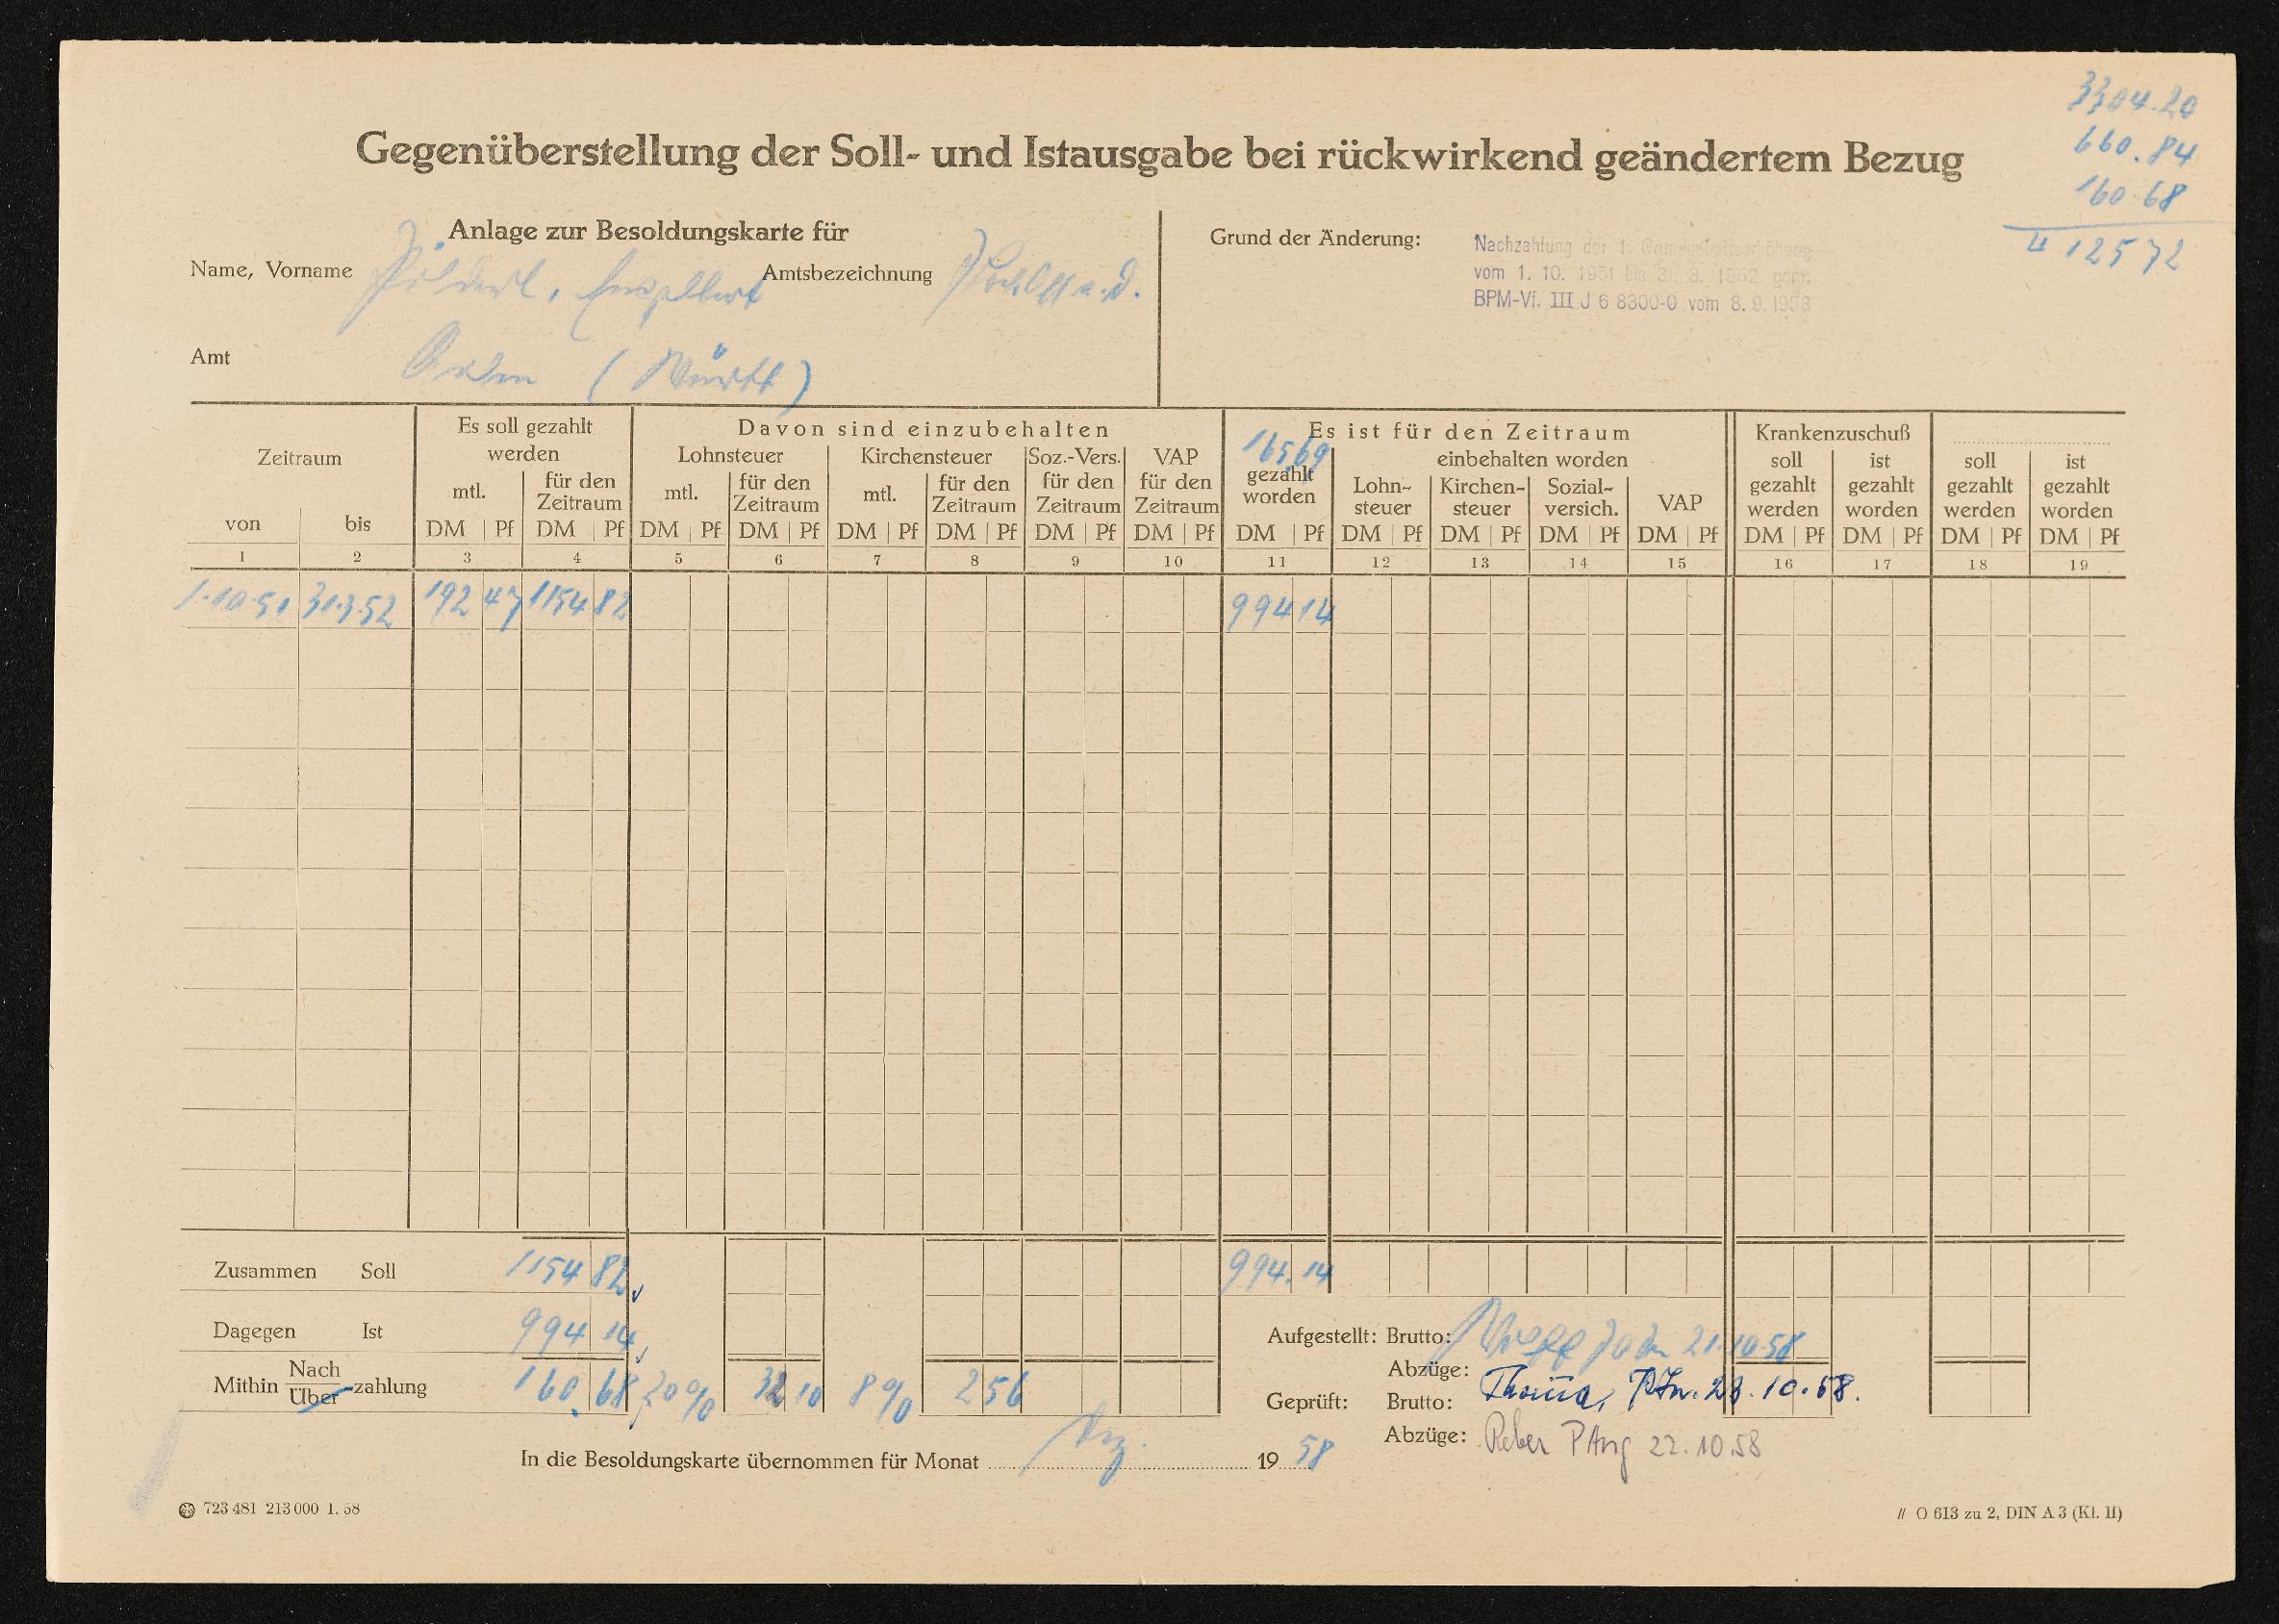 3304.20
660.84
160.68
4125 72
Gegenüberstellung der Soll- und Istausgabe bei rückwirkend geändertem Bezug
Anlage zur Besoldungskarte für
Name, Vorname
Amtsbezeichnung
Amt
(Württ)
Grund der Änderung:
Nachzahlung der 1. Grundgehaltserhöhung
vom 1. 10. 1951 bis 31. 3. 1952 gem.
BPM-Vf. III J 6 8300-0 vom 8. 9. 1958
Zeitraum
von bis
Es soll gezahlt
werden
mtl. für den
Zeitraum
DM Pf DM Pf
Davon sind einzubehalten
Lohnsteuer Kirchensteuer Soz.-Vers. VAP
mtl. für den
Zeitraum
mtl. für den
Zeitraum
für den
Zeitraum
für den
Zeitraum
DM Pf DM Pf DM Pf DM Pf DM Pf DM Pf
Es ist für den Zeitraum
165,69
gezahlt
worden
einbehalten worden
Lohn-
steuer
Kirchen-
steuer
Sozial-
versich.
VAP
DM Pf DM Pf DM Pf DM Pf DM Pf
Krankenzuschuß
soll
gezahlt
werden
ist
gezahlt
worden
soll
gezahlt
werden
ist
gezahlt
worden
DM Pf DM Pf DM Pf DM Pf
1 2 3 4 5 6 7 8 9 10 11 12 13 14 15 16 17 18 19
1.10.51 31.3.52 192 47 1154 82 994 14
Zusammen Soll 1154 82 994.14
Dagegen Ist 994 14
Mithin Nach/Über-zahlung 160.68 20% 32 10 8% 2 56
Aufgestellt: Brutto: 21.10.58
Abzüge:
Geprüft: Brutto: 23.10.58.
Abzüge: Reber PAng 22.10.58
In die Besoldungskarte übernommen für Monat 19 58
723 481 213 000 1. 58
// O 613 zu 2, DIN A 3 (Kl. II)